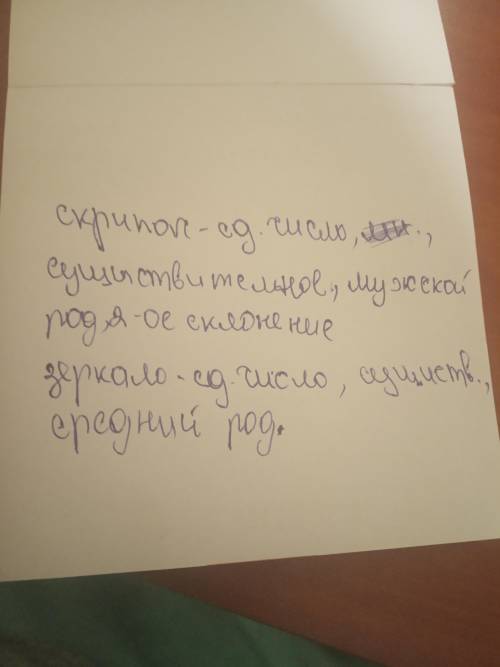 скрипач - ед. число,
существительное, мужской
род, 2-ое склонение
зеркало - ед. число, существ.,
средний род.